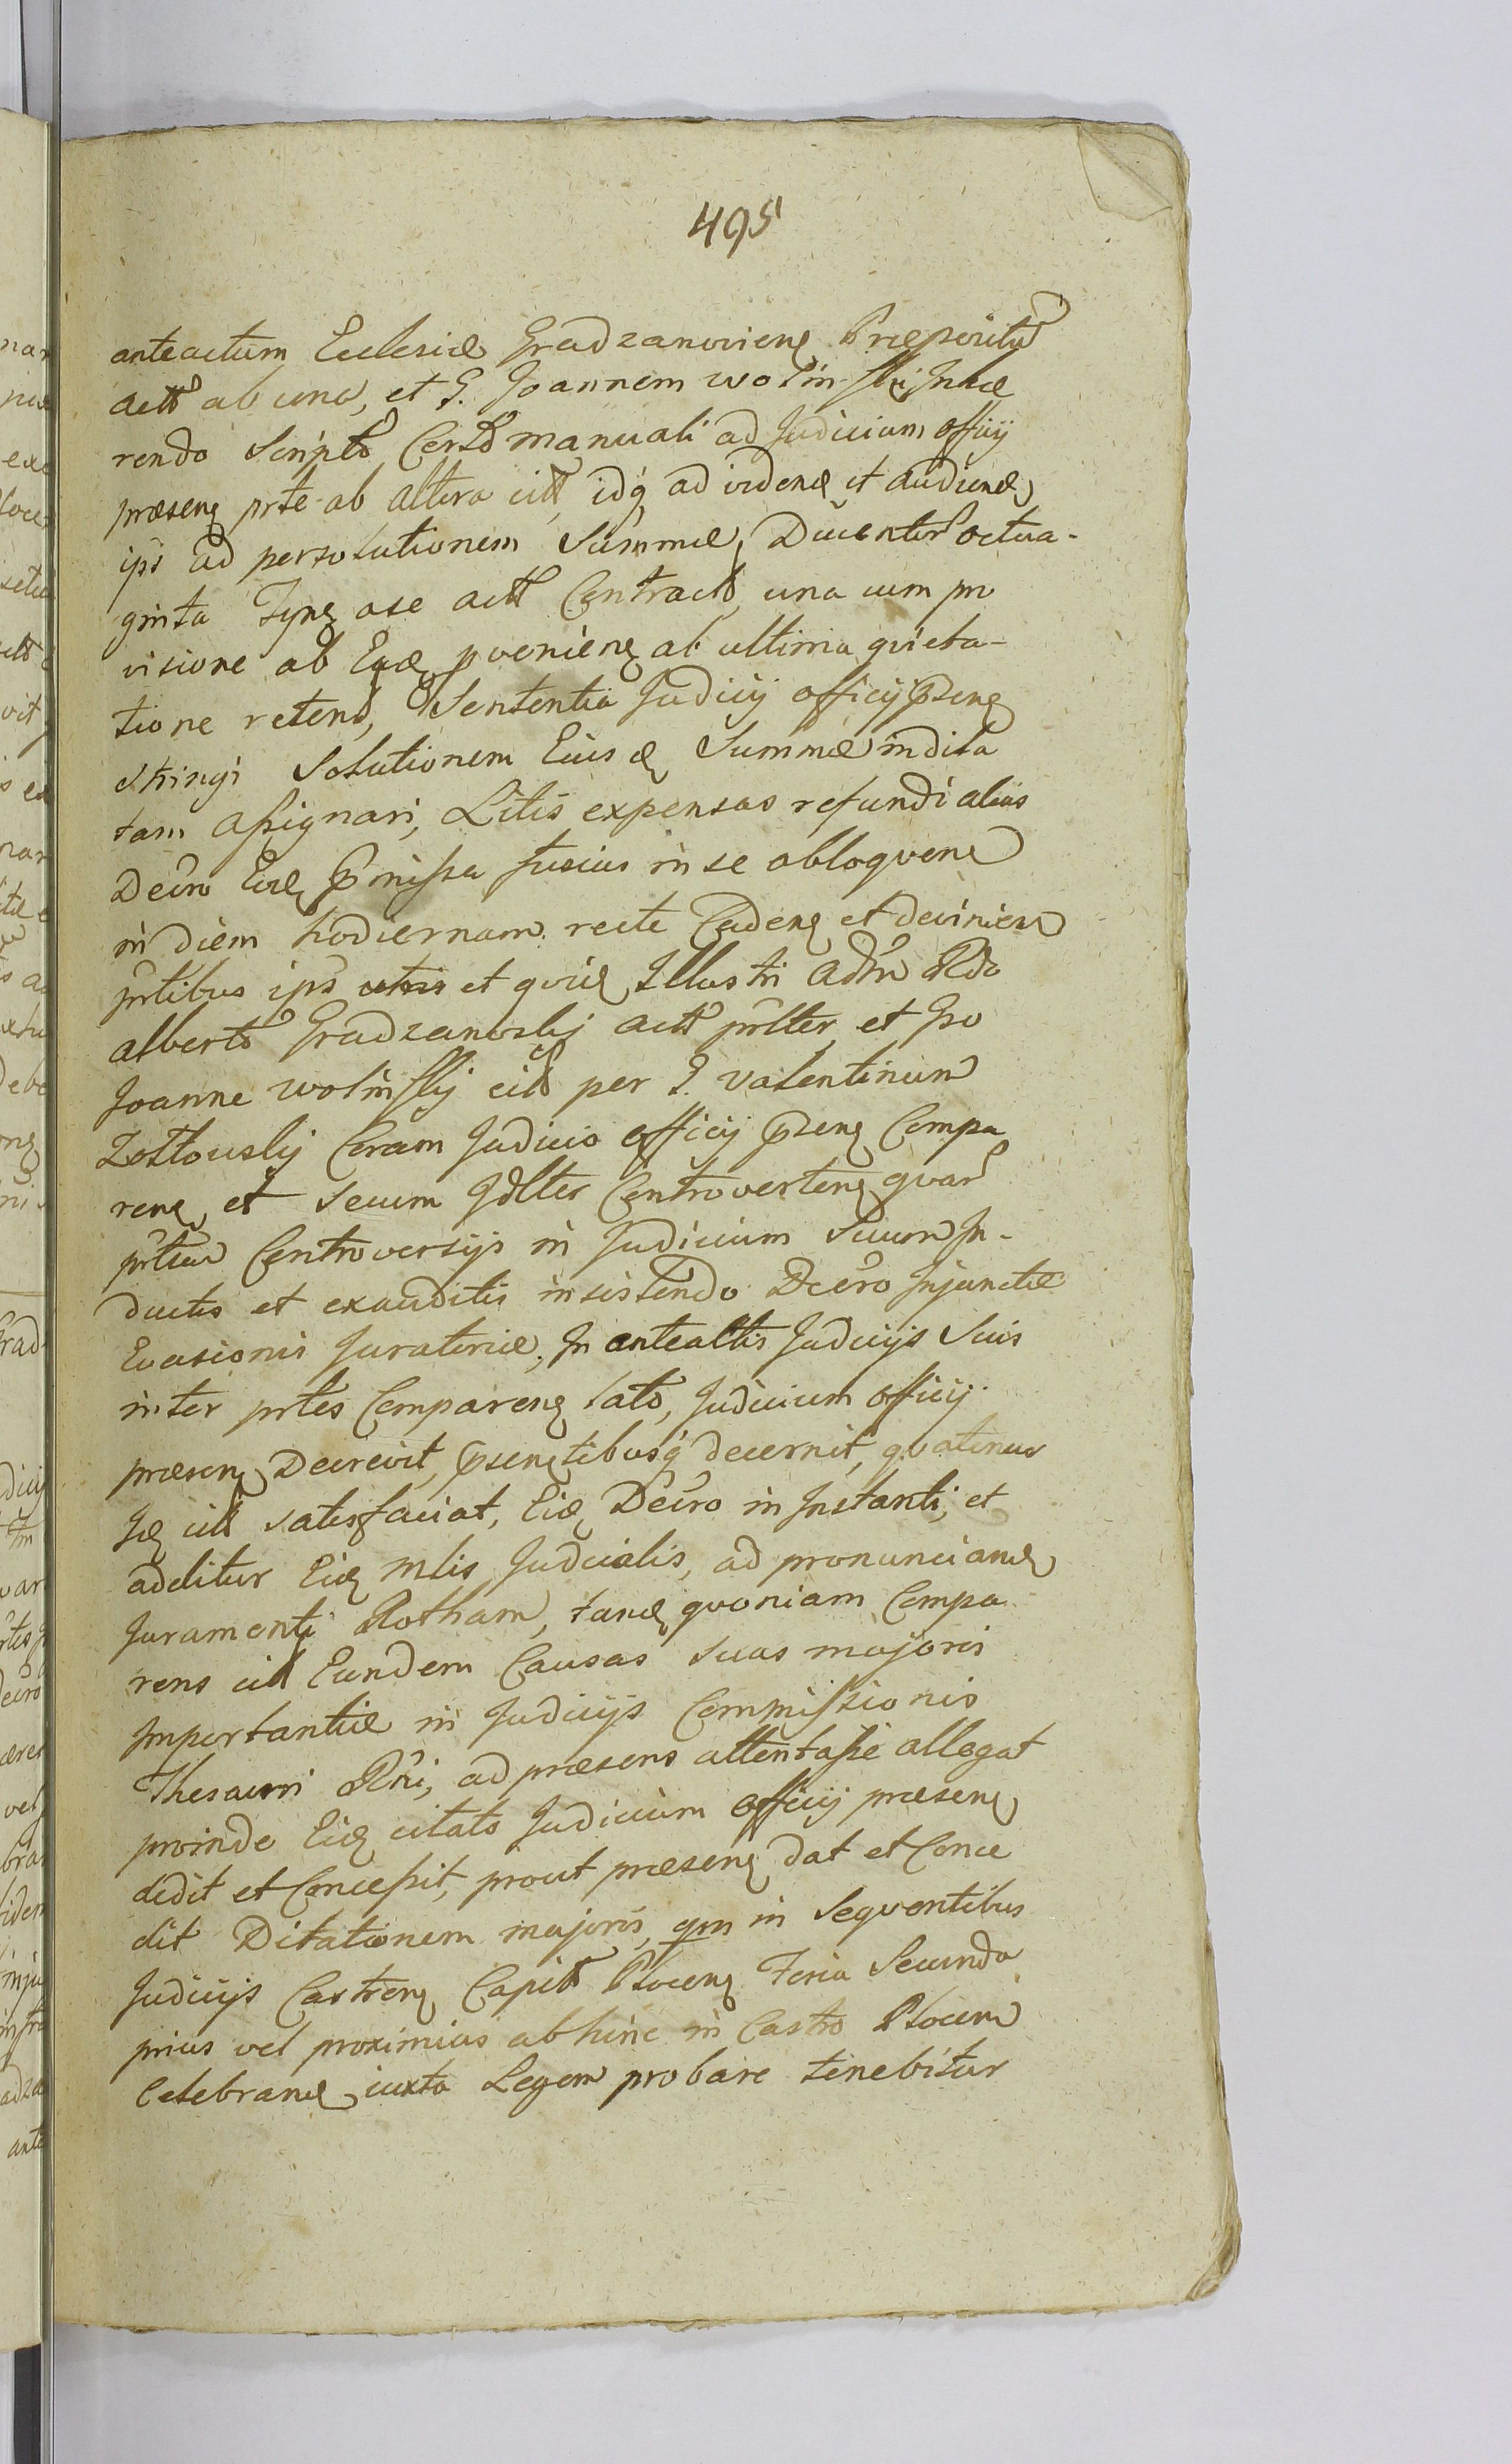 495
anteactum Ecclesiæ Gradzanoviens Præpositū
actt ab una, et G. Joannem Wolinski Inhæ
rendo Scripto Certo manuali ad Judicium officij
præsens prte ab altera citt, idq ad videnđ et audienđ
ips ad persolutionem Summæ Ducentor octua-
ginta Tynf ase actt Contracto una cum pro
visione ab Eađ pveniens ab ultima quieta-
tione retent, Sententia Judicij officij Psens
stringi Solutionem Eiusđ Summæ indila
tam assignari, Litis expensas refundi alias
Decro Eođ Pmissa fusius in se obloquens
in diem hodiernam recte Cadens et deviniens
prtibus ips actris et quiđ Illustri Adm Rdo
Alberto Gradzanowskij actt prlter et Gso
Joanne Wolinskij citt per G. Valentinum
Zoltowskij Coram Judicio officij Psens Compa
rens et secum Jdlter Controvertens quar
prtium Controversijs in Judicium Suum In-
ductis et exauditis insistendo Decro Injunctæ
Evasionis Juratoriæ, In anteactis Judicijs Suis
inter prtes Comparens lato, Judicium officij
præsens Decrevit, Psentibusq decernit, quatenus
Iđ citt satisfaciat, Eiđ Decro in Instanti, et
additur Eiđ Mlis Judicialis, ad pronuncianđ
Juramenti Rotham, tanđ quoniam Compa
rens citt Eundem Causas Suas majoris
Importantiæ in Judicijs Commissionis
Thesauri Rni, ad præsens attentasse allegat
proinde Eiđ citato Judicium officij præsens
dedit et Concessit, prout præsens dat et Conce
dit Dilationem majoris, qm in Sequentibus
Judicijs Castrens Capit Plocens Feria Secunda
prius vel proximius abhinc in Castro Plocens
Celebranđ, iuxta Legem probare tenebitur